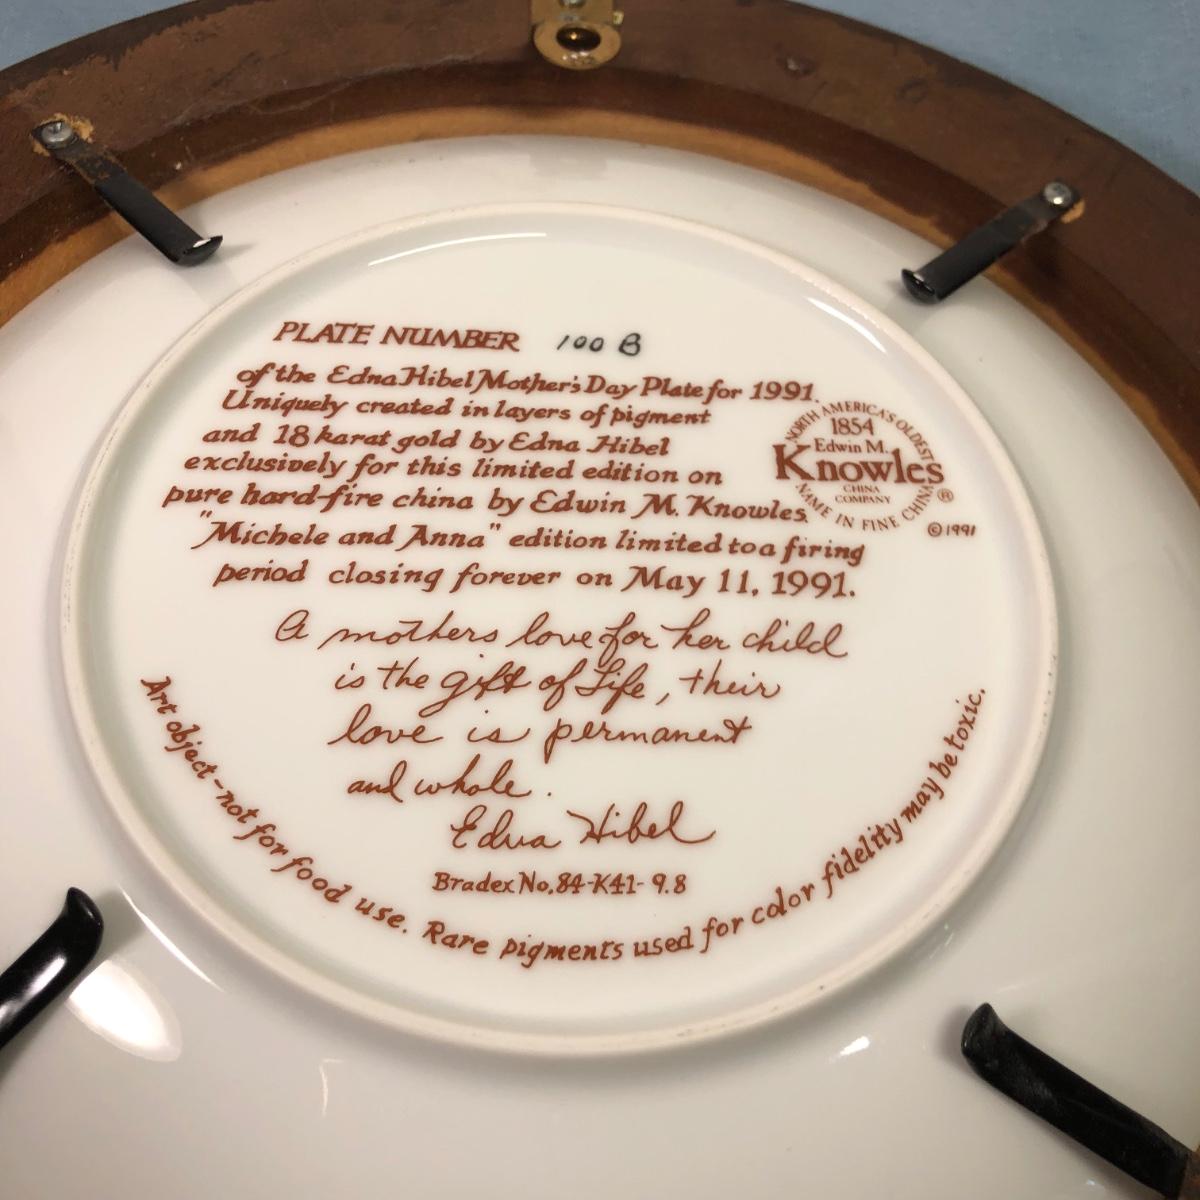 PLATE NUMBER 100 B
of the Edna Hibel Mother's Day Plate for 1991.
Uniquely created in layers of pigment
and 18 karat gold by Edna Hibel
exclusively for this limited edition on
pure hard-fire china by Edwin M. Knowles.
"Michele and Anna" edition limited to a firing
period closing forever on May 11, 1991.
NORTH AMERICA'S OLDEST
1854
Edwin M.
Knowles
CHINA
COMPANY
NAME IN FINE CHINA ®
© 1991
A mothers love for her child
is the gift of Life, their
love is permanent
and whole.
Edna Hibel
Bradex No. 84-K41-9.8
Art object-not for food use. Rare pigments used for color fidelity may be toxic.